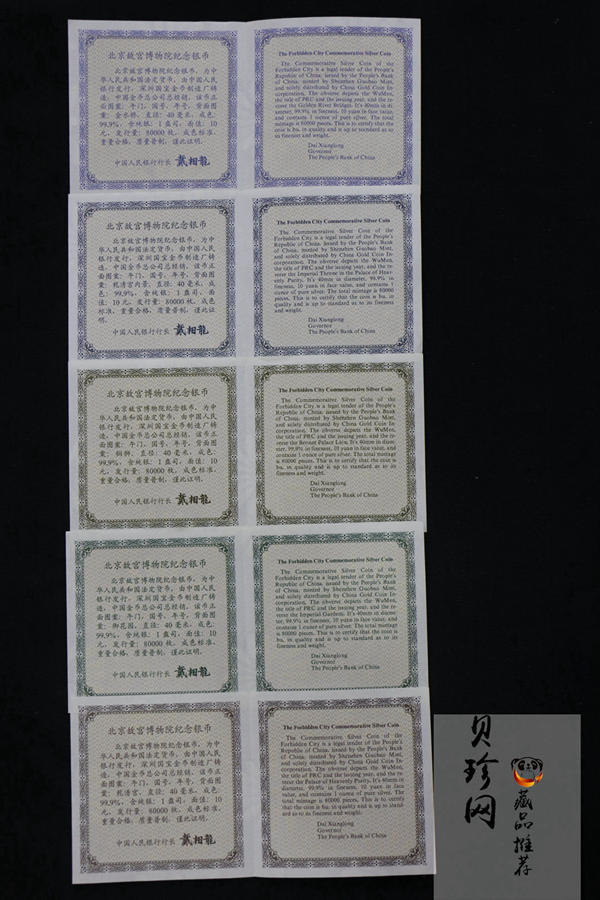 北京故宫博物院纪念银币
北京故宫博物院纪念银币，为中
华人民共和国法定货币，由中国人民
银行发行，深圳国宝金币制造厂铸
造，中国金币总公司总经销，该币正
面图案：午门、国号、年号，背面图
案：金水桥，直径：40毫米，成色：
99.9%，含纯银：1盎司，面值：10
元，发行量：80000枚，成色标准，
重量合格，质量普制，谨此证明。
中国人民银行行长 戴相龙
The Forbidden City Commemorative Silver Coin
The Commemorative Silver Coin of the
Forbidden City is a legal tender of the People's
Republic of China, issued by the People's Bank
of China, minted by Shenzhen Guobao Mint,
and solely distributed by China Gold Coin In-
corporation. The obverse depicts the WuMen,
the title of PRC and the issuing year, and the re-
verse the Golden River Bridges. It's 40mm in di-
ameter, 99.9% in fineness, 10 yuan in face value,
and contains 1 ounce of pure silver. The total
mintage is 80000 pieces. This is to certify that the
coin is bu, in quality and is up to standard as to
its fineness and weight.
Dai Xianglong
Governor
The People's Bank of China
北京故宫博物院纪念银币
北京故宫博物院纪念银币，为中
华人民共和国法定货币，由中国人民
银行发行，深圳国宝金币制造厂铸
造，中国金币总公司总经销，该币正
面图案：午门、国号、年号，背面图
案：乾清宫内景，直径：40毫米，成
色：99.9%，含纯银：1盎司，面
值：10元，发行量：80000枚，成色
标准，重量合格，质量普制，谨此证
明。
中国人民银行行长 戴相龙
The Forbidden City Commemorative Silver Coin
The Commemorative Silver Coin of the
Forbidden City is a legal tender of the People's
Republic of China, issued by the People's Bank
of China, minted by Shenzhen Guobao Mint,
and solely distributed by China Gold Coin In-
corporation. The obverse depicts the WuMen,
the title of PRC and the issuing year, and the re-
verse the Imperial Throne in the Palace of Heav-
enly Purity. It's 40mm in diameter, 99.9% in
fineness, 10 yuan in face value, and contains 1
ounce of pure silver. The total mintage is 80000
pieces. This is to certify that the coin is bu, in
quality and is up to standard as to its fineness
and weight.
Dai Xianglong
Governor
The People's Bank of China
北京故宫博物院纪念银币
北京故宫博物院纪念银币，为中
华人民共和国法定货币，由中国人民
银行发行，深圳国宝金币制造厂铸
造，中国金币总公司总经销，该币正
面图案：午门、国号、年号，背面图
案：铜狮，直径：40毫米，成色：
99.9%，含纯银：1盎司，面值：10
元，发行量：80000枚，成色标准，
重量合格，质量普制，谨此证明。
中国人民银行行长 戴相龙
The Forbidden City Commemorative Silver Coin
The Commemorative Silver Coin of the
Forbidden City is a legal tender of the People's
Republic of China, issued by the People's Bank
of China, minted by Shenzhen Guobao Mint,
and solely distributed by China Gold Coin In-
corporation. The obverse depicts the WuMen,
the title of PRC and the issuing year, and the re-
verse the Bronze Palace Lion. It's 40mm in diam-
eter, 99.9% in fineness, 10 yuan in face value, and
contains 1 ounce of pure silver. The total mintage
is 80000 pieces. This is to certify that the coin is
bu, in quality and is up to standard as to its
fineness and weight.
Dai Xianglong
Governor
The People's Bank of China
北京故宫博物院纪念银币
北京故宫博物院纪念银币，为中
华人民共和国法定货币，由中国人民
银行发行，深圳国宝金币制造厂铸
造，中国金币总公司总经销，该币正
面图案：午门、国号、年号，背面图
案：御花园，直径：40毫米，成色：
99.9%，含纯银：1盎司，面值：10
元，发行量：80000枚，成色标准，
重量合格，质量普制，谨此证明。
中国人民银行行长 戴相龙
The Forbidden City Commemorative Silver Coin
The Commemorative Silver Coin of the
Forbidden City is a legal tender of the People's
Republic of China, issued by the People's Bank
of China, minted by Shenzhen Guobao Mint,
and solely distributed by China Gold Coin In-
corporation. The obverse depicts the WuMen,
the title of PRC and the issuing year, and the re-
verse the Imperial Gardens. It's 40mm in diame-
ter, 99.9% in fineness, 10 yuan in face value, and
contains 1 ounce of pure silver. The total mintage
is 80000 pieces. This is to certify that the coin is
bu, in quality and is up to standard as to its
fineness and weight.
Dai Xianglong
Governor
The People's Bank of China
北京故宫博物院纪念银币
北京故宫博物院纪念银币，为中
华人民共和国法定货币，由中国人民
银行发行，深圳国宝金币制造厂铸
造，中国金币总公司总经销，该币正
面图案：午门、国号、年号，背面图
案：乾清宫，直径：40毫米，成色：
99.9%，含纯银：1盎司，面值：10
元，发行量：80000枚，成色标准，
重量合格，质量普制，谨此证明。
中国人民银行行长 戴相龙
The Forbidden City Commemorative Silver Coin
The Commemorative Silver Coin of the
Forbidden City is a legal tender of the People's
Republic of China, issued by the People's Bank
of China, minted by Shenzhen Guobao Mint,
and solely distributed by China Gold Coin In-
corporation. The obverse depicts the WuMen,
the title of PRC and the issuing year, and the re-
verse the Palace of Heavenly Purity. It's 40mm in
diameter, 99.9% in fineness, 10 yuan in face
value, and contains 1 ounce of pure silver. The
total mintage is 80000 pieces. This is to certify
that the coin is bu, in quality and is up to stand-
ard as to its fineness and weight.
Dai Xianglong
Governor
The People's Bank of China
贝珍网
藏品推荐